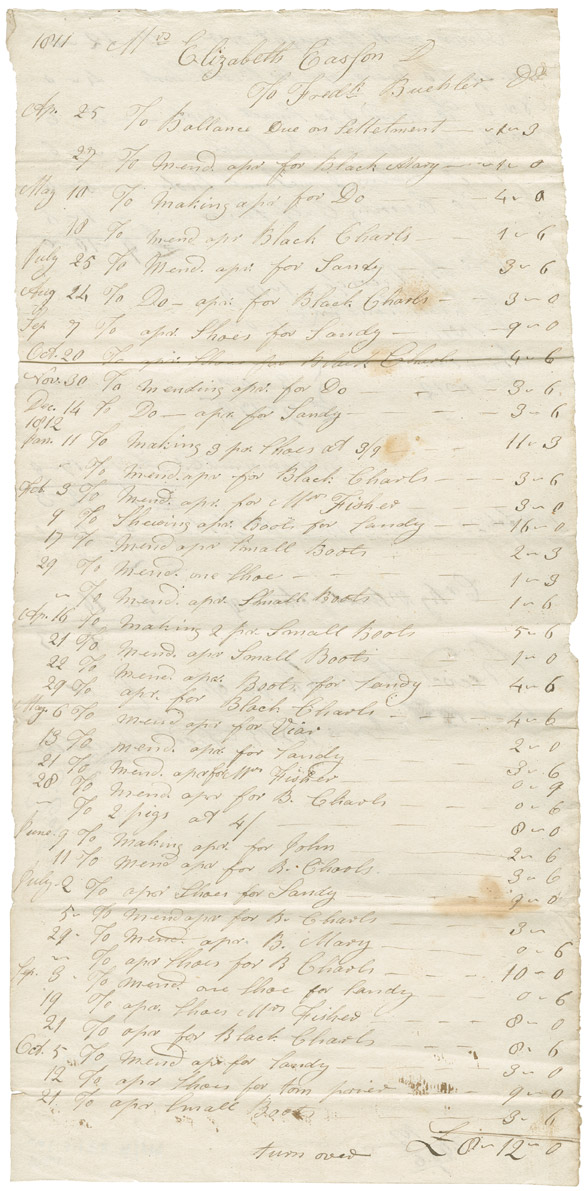 1811 Mrs Elizabeth Casson D
To Fredk. Buehler Dr
Apr. 25 To Ballance Due on Settetment - 1 - 3
27 To Mend. apr for Black Mary - 1 - 0
May 10 To Making apr for Do - 4 - 0
18 To Mend apr Black Charls - 1 - 6
July 25 To Mend. apr. for Sandy - 3 - 6
Aug 24 To Do - apr. for Black Charls - 3 - 0
Sep. 7 To apr. Shoes for Sandy - 9 - 0
Oct. 20 To apr. Shoes for Black Charls 4 - 6
Nov. 30 To Mending apr. for Do - 3 - 6
Dec. 14 To Do - apr. for Sandy - 3 - 6
1812
Jan. 11 To Making 3 pr. Shoes at 3/9 - 11 - 3
" To Mend. apr for Black Charls - 3 - 6
Feb. 3 To Mend. apr. for Mrs Fisher - 3 - 0
9 To Shewing apr. Boots for Sandy - 16 - 0
17 To Mend apr Small Boots 2 - 3
29 To Mend. one Shoe - 1 - 3
" To Mend. apr. Small Boots 1 - 6
Apr. 16 To Making 2 pr. Small Boots 5 - 6
21 To Mend. apr Small Boots 1 - 0
22 To Mend apr. Boots for Sandy 4 - 6
29 To apr. for Black Charls - 4 - 6
May. 6 To Mend apr for Viar - 2 - 0
13 To mend. apr. for Sandy 3 - 6
21 To Mend. apr for Mrs Fisher 0 - 9
28 To Mend apr for B. Charls 0 - 6
" To 2 pigs at 4/ 8 - 0
June. 9 To Making apr. for John 2 - 6
11 To Mend apr for B. Charls. 3 - 6
July. 2 To apr Shoes for Sandy 9 - 0
5 - To Mend apr for B. Charls 3 -
29 - To Mend. apr. B. Mary - 0 - 6
" To apr Shoes for B Charls - 10 - 0
Sep. 3 - To Mend one Shoe for Sandy 0 - 6
19 To apr. Shoes Mrs Fisher 8 - 0
21 To apr for Black Charls 8 - 6
Oct. 5 To Mend apr for Sandy 3 - 0
12 To apr Shoes for tom prier 9 - 0
21 To apr Small Boots 3 - 6
turn over £8 - 12 - 0